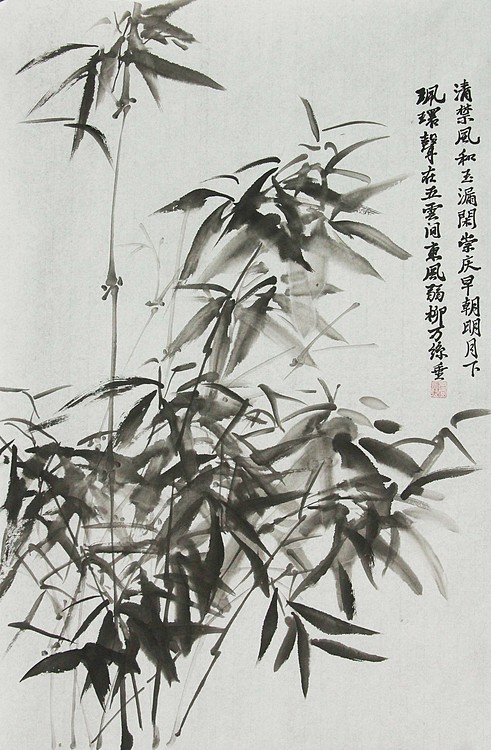 清禁風和玉漏閑崇庆早朝明月下
珮環聲在五雲间東風弱柳万絲垂